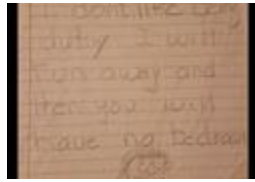 I dont like
duty I will
run away and
then you will
have no